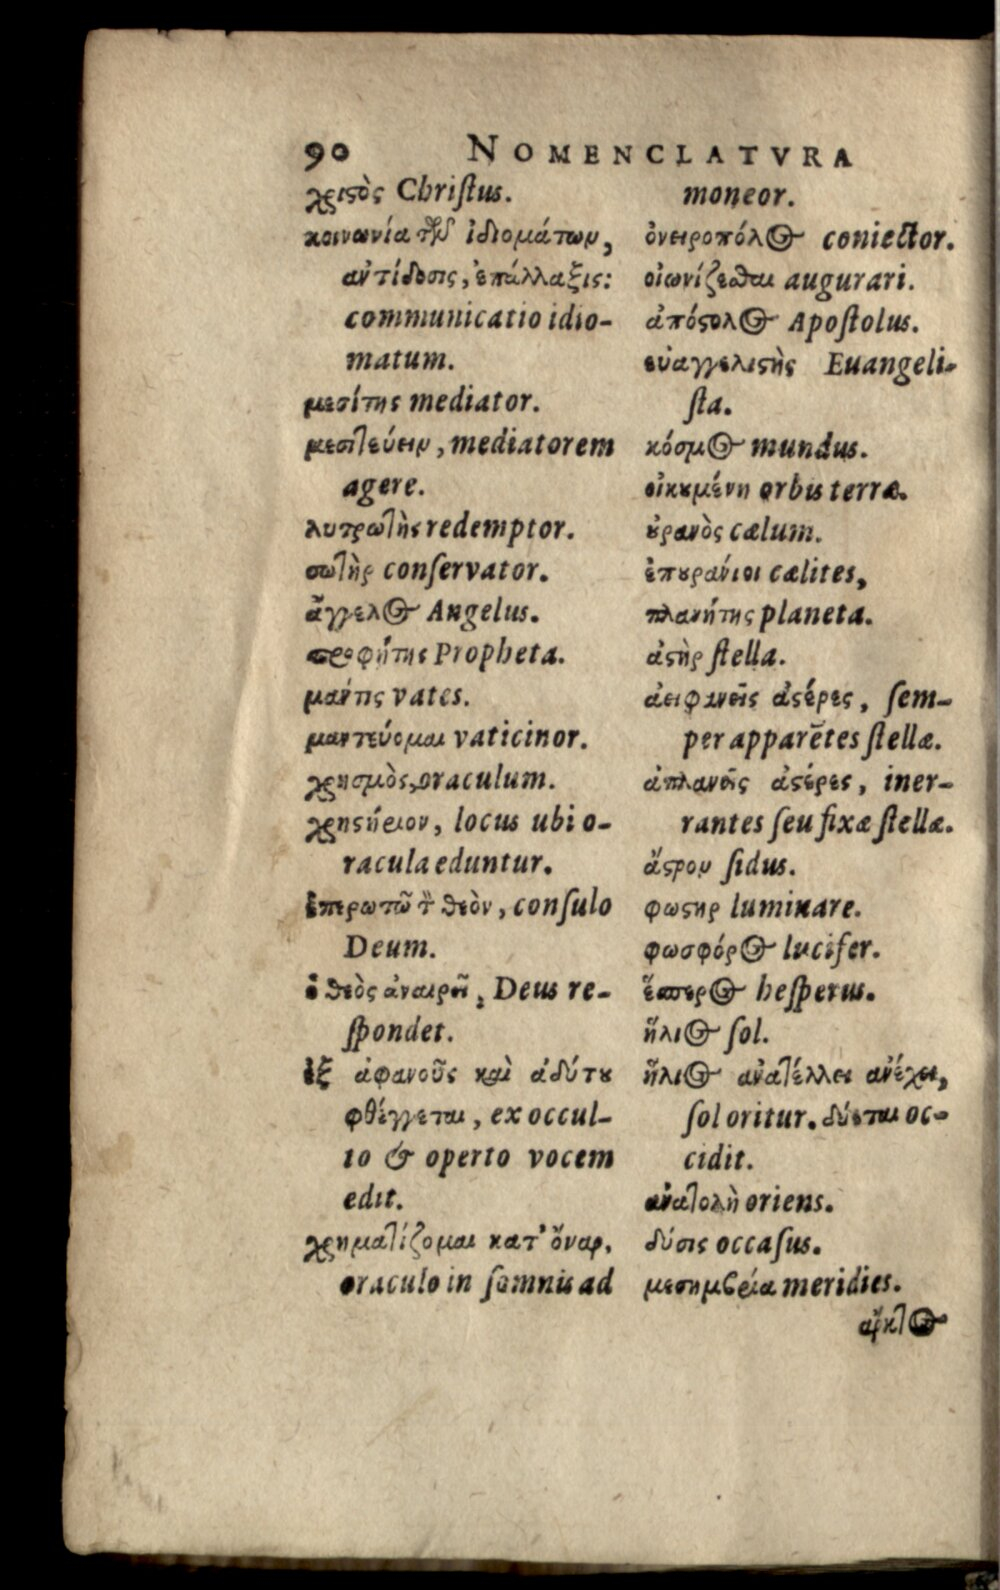 90 NOMENCLATVRA
χριϛὸς Chriſtus.
κοινωνία τῶν ἰδιομάτων,
ἀντίδοσις, ἐπάλλαξις:
communicatio idio-
matum.
μεσίτης mediator.
μεσιτεύειν, mediatorem
agere.
λυτρωτὴς redemptor.
σωτὴρ conſervator.
ἄγγελος Angelus.
προφήτης Propheta.
μαντις vates.
μαντεύομαι vaticinor.
χρησμὸς, oraculum.
χρηϛήριον, locus ubi o-
racula eduntur.
ἐπερωτῶ τὸν θεὸν, conſulo
Deum.
ὁ θεὸς ἀναιρεῖ, Deus re-
ſpondet.
ἐξ ἀφανοῦς καὶ ἀδύτȣ
φθέγγεται, ex occul-
to & operto vocem
edit.
χρηματίζομαι κατ' ὄναρ,
oraculo in ſomnis ad
moneor.
ὀνειροπόλος coniector.
οἰωνίζεσθαι augurari.
ἀπόϛολος Apoſtolus.
εὐαγγελιϛὴς Euangeli-
ſta.
κόσμος mundus.
οἰκȣμένη orbis terræ.
ȣρανὸς cælum.
ἐπȣράνιοι cælites,
πλανήτης planeta.
ἀϛὴρ ſtella.
ἀειφανεῖς ἀϛέρες, ſem-
per apparẽtes ſtellæ.
ἀπλανεῖς ἀϛέρες, iner-
rantes ſeu fixæ ſtellæ.
ἄϛρον ſidus.
φωϛηρ luminare.
φωσφόρος lucifer.
ἕσπερος heſperus.
ἥλιος ſol.
ἥλιος ἀνατέλλει ἀνέχει,
ſol oritur. δύεται oc-
cidit.
ἀνατολὴ oriens.
δύσις occaſus.
μεσημβρία meridies.
ἄρκτος